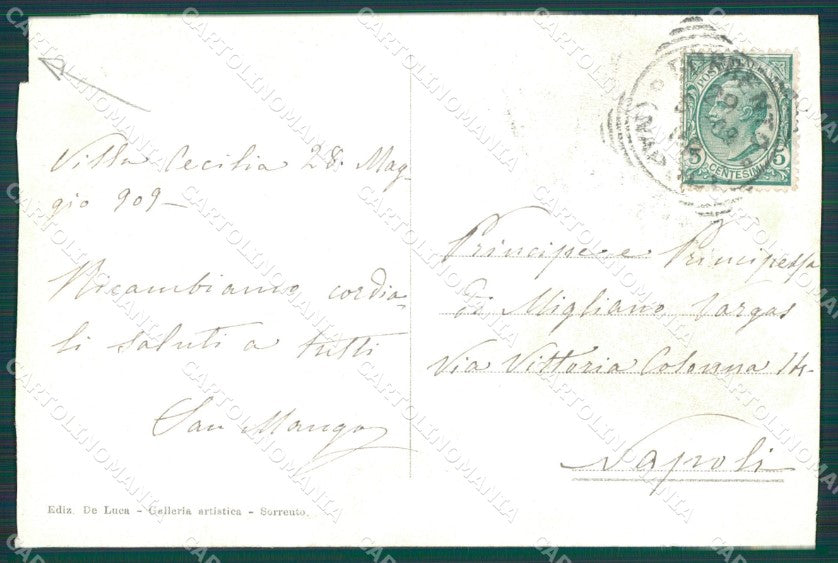 Villa Cecilia 28. Mag-
gio 909 –
Ricambiamo cordia-
li saluti a tutti
San Mango
Ediz. De Luca - Galleria artistica - Sorrento.
SORRENTO
POSTE ITALIANE
5 5
CENTESIMI
Principe e Principessa
di Migliano Vargas
Via Vittoria Colonna 14-
Napoli
CARTOLINOMANIA